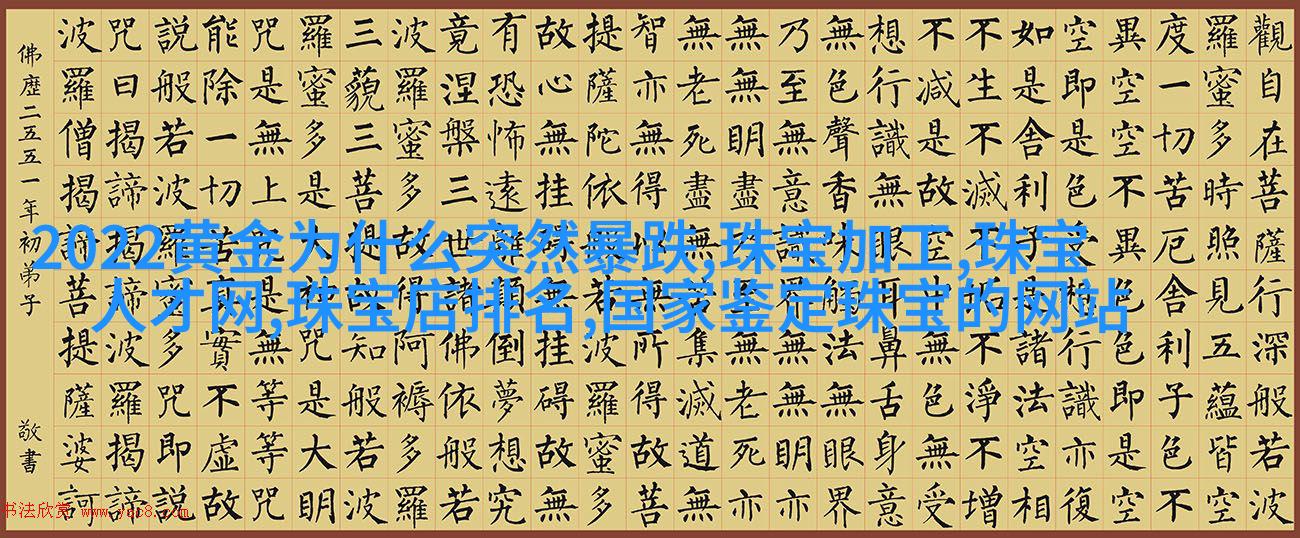 觀自在菩薩行深般若波
羅蜜多時照見五蘊皆空
度一切苦厄舍利子色不
異空空不異色色即是空
空即是色受想行識亦復
如是舍利子是諸法空相
不生不滅不垢不淨不增
不減是故空中無色無受
想行識無眼耳鼻舌身意
無色聲香味觸法無眼界
乃至無意識界無無明亦
無無明盡無至無老死亦
無老死盡無苦集滅道無
智亦無得以無所得故菩
提薩陀依般若波羅蜜多
故心無挂礙無挂礙故無
有恐怖遠離顛倒夢想究
竟涅槃三世諸佛依般若
波羅蜜多故得阿褥多羅
三藐三菩提故知般若波
羅蜜多是大神咒是大明
咒是無上咒是無等等咒
能除一切苦真實不虛故
說般若波羅蜜多咒即說
咒曰揭諦揭諦波羅揭諦
波羅僧揭諦菩提薩婆訶
佛歷二五五一年初弟子 敬書
2022黄金为什么突然暴跌,珠宝加工,珠宝
人才网,珠宝店排名,国家鉴定珠宝的网站
书法欣赏 www.yac8.com